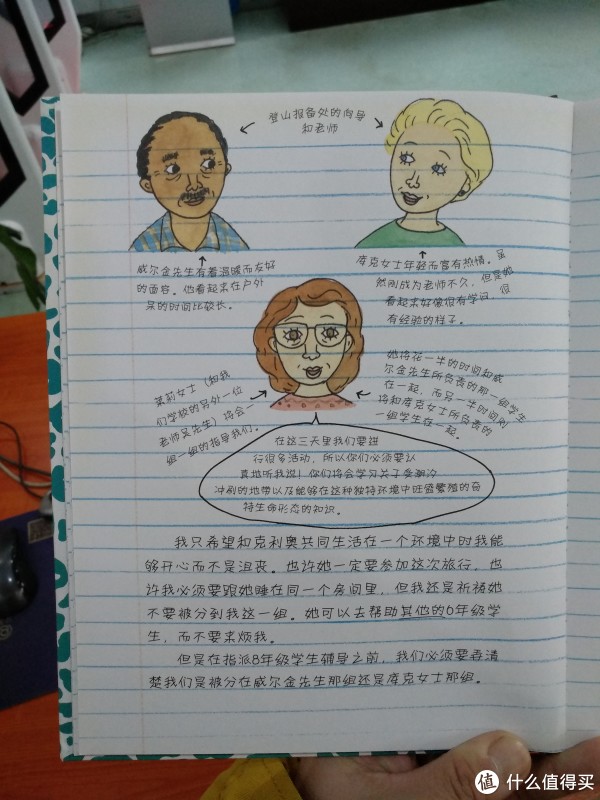 登山报备处的向导
和老师
威尔金先生有着温暖而友好
的面容。他看起来在户外
呆的时间比较长。
库克女士年轻而富有热情。虽
然刚成为老师不久，但是她
看起来好像很有学问、很
有经验的样子。
茉莉女士（和我
们学校的另外一位
老师吴先生）将会一
组一组的指导我们。
她将花一半的时间和威
尔金先生所负责的那一组学生
在一起，而另一半时间则
将和库克女士所负责的
一组学生在一起。
在这三天里我们要进
行很多活动，所以你们必须要认
真地听我说！你们将会学习关于受潮汐
冲刷的地带以及能够在这种独特环境中旺盛繁殖的奇
特生命形态的知识。
我只希望和克利奥共同生活在一个环境中时我能
够开心而不是沮丧。也许她一定要参加这次旅行，也
许我必须要跟她睡在同一个房间里，但我还是祈祷她
不要被分到我这一组。她可以去帮助其他的6年级学
生，而不要来烦我。
但是在指派8年级学生辅导之前，我们必须要弄清
楚我们是被分在威尔金先生那组还是库克女士那组。
值 什么值得买